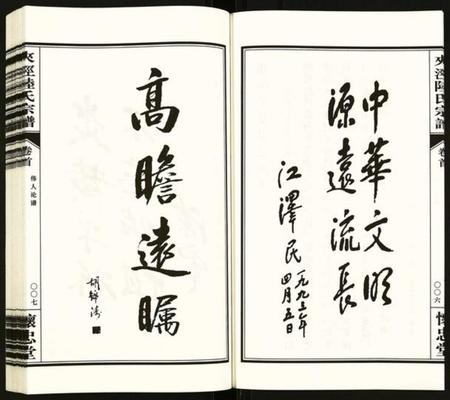 夾涇陸氏宗譜
卷首
〇〇六
懷忠堂
中華文明
源遠流長
江澤民
一九九三年
四月五日
高瞻遠矚
胡錦濤
夾涇陸氏宗譜
卷首
偉人論譜
〇〇七
懷忠堂